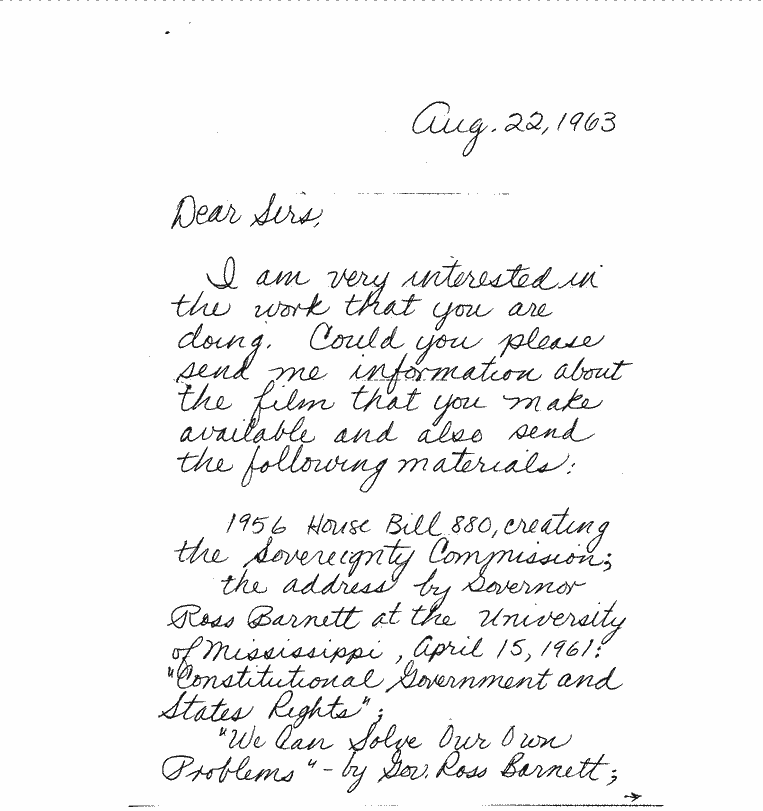 Aug. 22, 1963
Dear Sirs,
I am very interested in
the work that you are
doing. Could you please
send me information about
the film that you make
available and also send
the following materials:
1956 House Bill 880, creating
the Sovereignty Commission;
the address by Governor
Ross Barnett at the University
of Mississippi, April 15, 1961:
"Constitutional Government and
States Rights";
"We Can Solve Our Own
Problems" - by Gov. Ross Barnett;
→